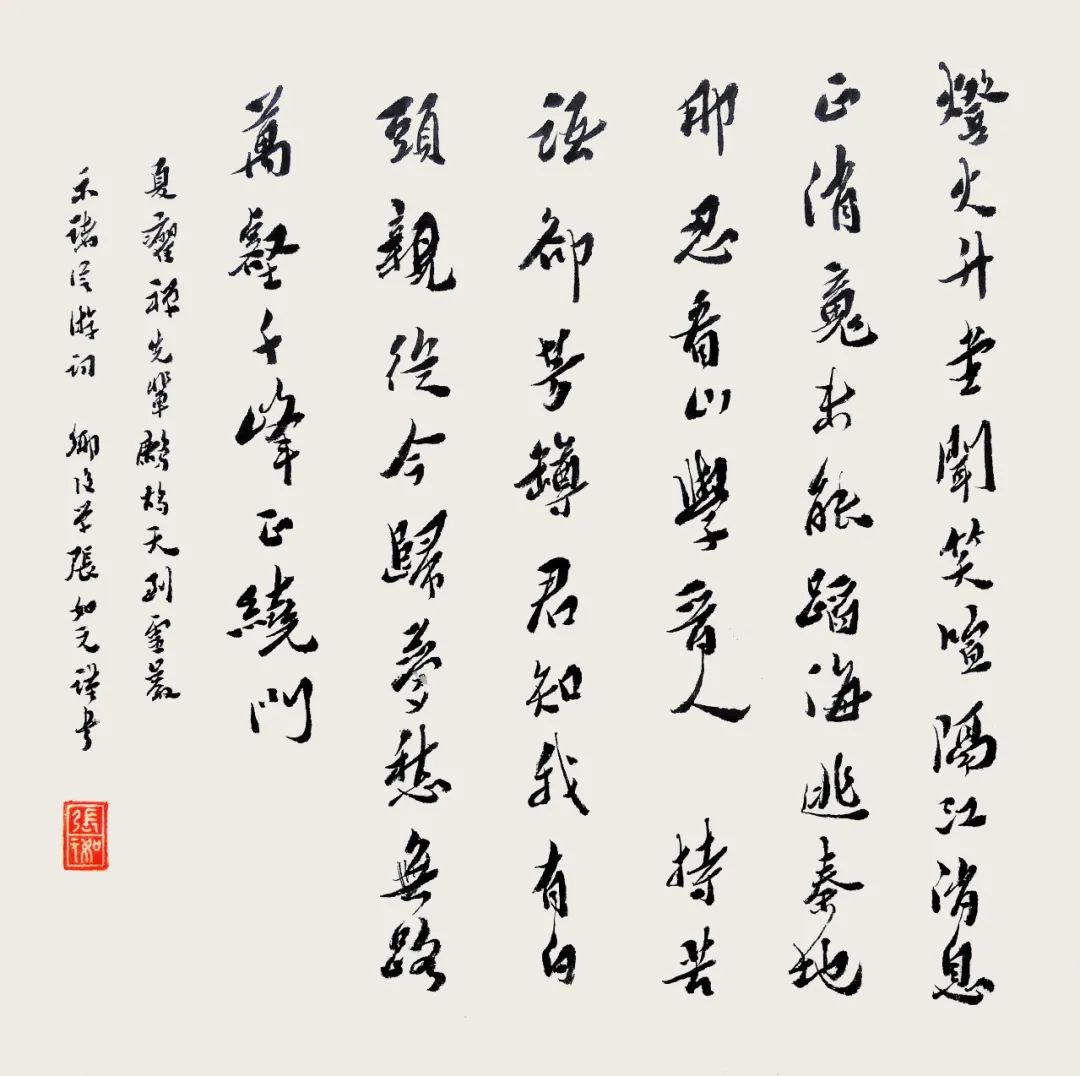 燈火升堂聞笑喧隔江消息
正消魂未能蹈海逃秦地
那忍看山學晉人 持苦
語卻芳罇君知我有白
頭親從今歸夢愁無路
萬壑千峰正繞門
夏瞿禪先輩鷓鴣天到靈巖
示諸從游詞 鄉後學張如元謹書
張如